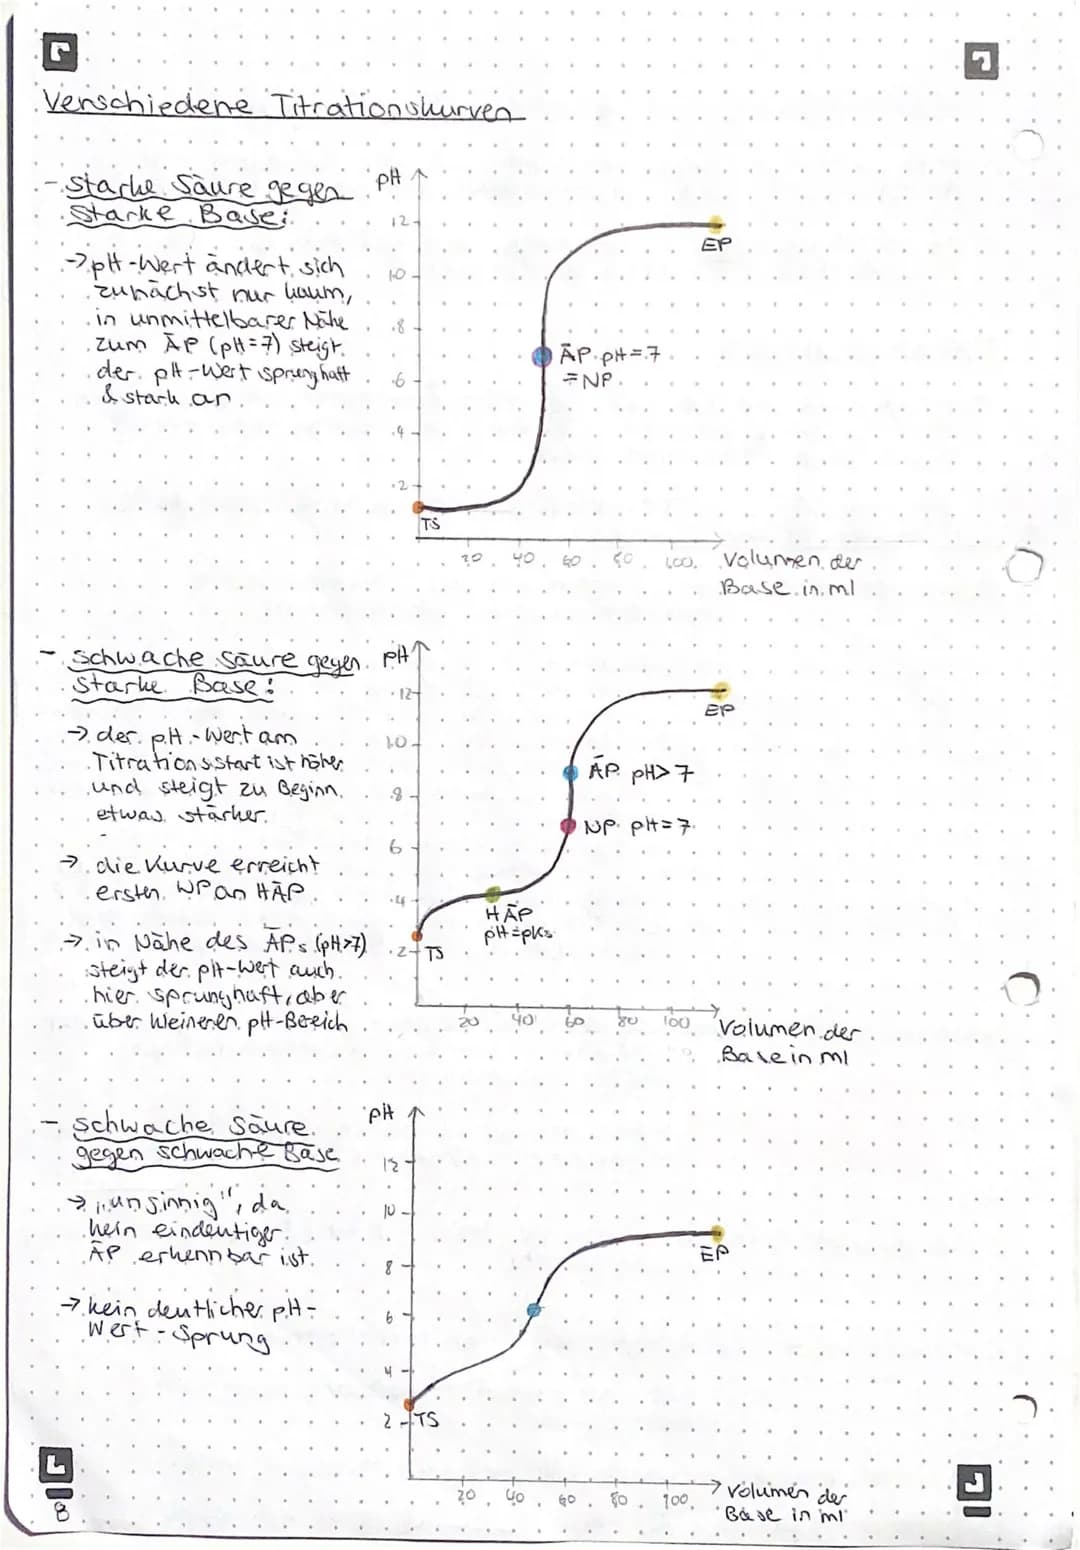 Verschiedene Titrationskurven
- starke Säure gegen
Starke Base:
→ pH-Wert ändert sich
zunächst nur kaum,
in unmittelbarer Nähe
zum ÄP (pH=7) steigt
der pH-Wert sprunghaft
& stark an
pH
12
10
8
6
4
2
EP
ÄP pH=7
=NP
TS
20 40 60 80 100
Volumen der
Base in ml
- schwache Säure gegen
Starke Base:
→ der pH-Wert am
Titrationsstart ist höher
und steigt zu Beginn
etwas stärker
→ die Kurve erreicht
ersten WP an HÄP
→ in Nähe des ÄPs (pH>7)
steigt der pH-Wert auch
hier sprunghaft, aber
über kleineren pH-Bereich
pH
12
10
8
6
4
2
EP
ÄP pH>7
NP pH=7
HÄP
pH=pKs
TS
20 40 60 80 100
Volumen der
Base in ml
- schwache Säure
gegen schwache Base
→ „unsinnig", da
kein eindeutiger
ÄP erkennbar ist
→ kein deutlicher pH-
Wert-Sprung
pH
12
10
8
6
4
2
EP
TS
20 40 60 80 100
Volumen der
Base in ml
8